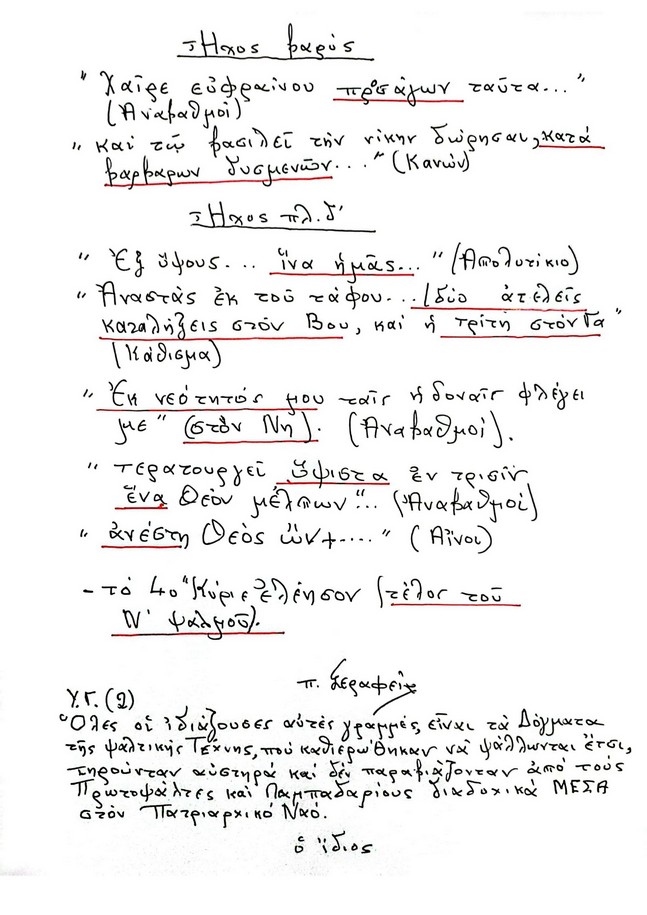 Ἦχος βαρύς
"Χαῖρε εὐφραίνου προσάγων ταῦτα..."
(Ἀναβαθμοί)
"καί τῷ βασιλεῖ τήν νίκην δώρησαι, κατά
βαρβάρων δυσμενῶν..." (Κανών)
Ἦχος πλ. δ'
"Ἐξ ὕψους... ἵνα ἡμᾶς..." (Ἀπολυτίκιο)
"Ἀναστάς ἐκ τοῦ τάφου... (δύο ἀτελεῖς
καταλήξεις στόν Βου, καί ἡ τρίτη στόν Γα"
(Κάθισμα)
"Ἐκ νεότητός μου ταῖς ἡδοναῖς φλέγει
με" (στόν Νη). (Ἀναβαθμοί).
"τερατουργεῖ ὕψιστα ἐν τρισίν
ἕνα Θεόν μέλπων"... (Ἀναβαθμοί)
"ἀνέστη Θεός ὤν+...." (Αἶνοι)
- τό 4ο "Κύριε ἐλέησον (τέλος τοῦ
Ν' ψαλμοῦ).
π. Σεραφείμ
Υ.Γ. (2)
Ὅλες οἱ ἰδιάζουσες αὐτές γραμμές, εἶναι τά Δόγματα
τῆς ψαλτικῆς Τέχνης, πού καθιερώθηκαν νά ψάλλωνται ἔτσι,
τηροῦνταν αὐστηρά καί δέν παραβιάζονταν ἀπό τούς
Πρωτοψάλτες καί Λαμπαδαρίους διαδοχικά ΜΕΣΑ
στόν Πατριαρχικό Ναό.
ὁ ἴδιος